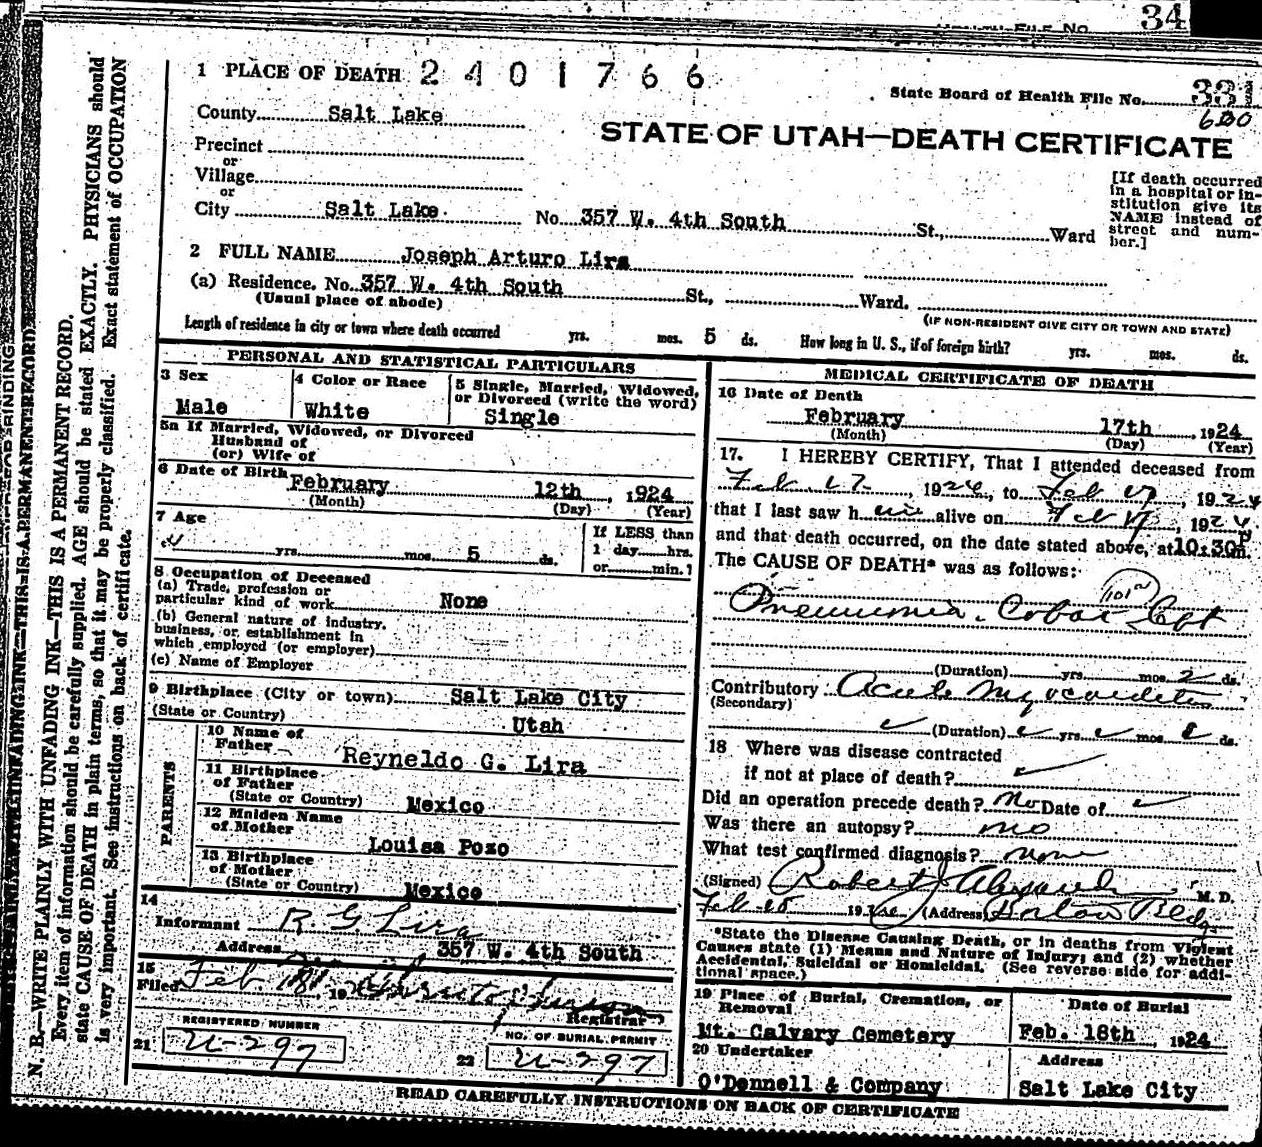 34
HEALTH FILE NO.
1 PLACE OF DEATH 2401766
State Board of Health File No. 331
600
County Salt Lake
STATE OF UTAH—DEATH CERTIFICATE
Precinct
or
Village
or
City Salt Lake No. 357 W. 4th South St., Ward
[If death occurred
in a hospital or in-
stitution give its
NAME instead of
street and num-
ber.]
2 FULL NAME Joseph Arturo Lira
(a) Residence. No. 357 W. 4th South St., Ward.
(Usual place of abode)
(IF NON-RESIDENT GIVE CITY OR TOWN AND STATE)
Length of residence in city or town where death occurred yrs. mos. 5 ds. How long in U. S., if of foreign birth? yrs. mos. ds.
PERSONAL AND STATISTICAL PARTICULARS
3 Sex
Male
4 Color or Race
White
5 Single, Married, Widowed,
or Divorced (write the word)
Single
5a If Married, Widowed, or Divorced
Husband of
(or) Wife of
6 Date of Birth February 12th, 1924
(Month) (Day) (Year)
7 Age
yrs. mos. 5 ds.
If LESS than
1 day hrs.
or min.?
8 Occupation of Deceased
(a) Trade, profession or
particular kind of work None
(b) General nature of industry,
business, or establishment in
which employed (or employer)
(c) Name of Employer
9 Birthplace (City or town) Salt Lake City
(State or Country) Utah
PARENTS
10 Name of
Father Reyneldo G. Lira
11 Birthplace
of Father
(State or Country) Mexico
12 Maiden Name
of Mother
Louisa Pozo
13 Birthplace
of Mother
(State or Country) Mexico
14
Informant R. G. Lira
Address 357 W. 4th South
15
Filed Feb. 19
Registrar
REGISTERED NUMBER
21 U-297
NO. OF BURIAL PERMIT
22 U-297
MEDICAL CERTIFICATE OF DEATH
16 Date of Death
February 17th, 1924
(Month) (Day) (Year)
17. I HEREBY CERTIFY, That I attended deceased from
Feb 17, 1924, to Feb 17, 1924
that I last saw him alive on Feb 17, 1924
and that death occurred, on the date stated above, at 10:30P m.
The CAUSE OF DEATH* was as follows:
101
Pneumonia. Lobar Left
(Duration) yrs. mos. 2 ds.
Contributory Acute Myocarditis
(Secondary)
(Duration) yrs. mos. ds.
18 Where was disease contracted
if not at place of death?
Did an operation precede death? No Date of
Was there an autopsy? no
What test confirmed diagnosis? none
(Signed) Robert J. M. D.
Feb 1924 (Address) Bldg.
*State the Disease Causing Death, or in deaths from Violent
Causes state (1) Means and Nature of Injury; and (2) whether
Accidental, Suicidal or Homicidal. (See reverse side for addi-
tional space.)
19 Place of Burial, Cremation, or
Removal
Mt. Calvary Cemetery
Date of Burial
Feb. 18th, 1924
20 Undertaker
O'Donnell & Company
Address
Salt Lake City
READ CAREFULLY INSTRUCTIONS ON BACK OF CERTIFICATE
N. B.—WRITE PLAINLY WITH UNFADING INK—THIS IS A PERMANENT RECORD.
Every item of information should be carefully supplied. AGE should be stated EXACTLY. PHYSICIANS should
state CAUSE OF DEATH in plain terms, so that it may be properly classified. Exact statement of OCCUPATION
is very important. See instructions on back of certificate.